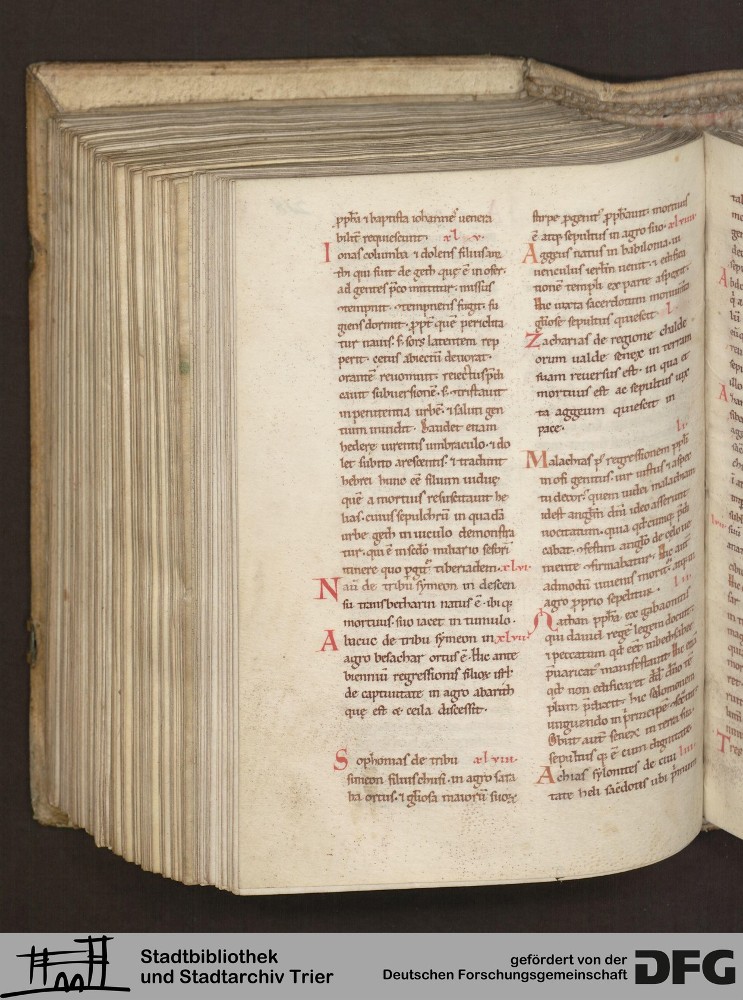 ꝓph̄a ⁊ baptista iohanneſ uenera
biliť requieſcunt. xl v.
Ionas columba ⁊ dolens filiuſ
thi qui fuit de geth que ē in ofer.
ad gentes p̄co mittitur. miſſus
ꝯtempnit. ꝯtempnens fugit. fu
giens dormit. ꝓpť quē periclita
tur nauis. ſ; ſors latentem rep
perit. cetus abiectū deuorat.
orantē reuomuit. reiectuſ p̄di
cauit ſubuerſionē. ſ; ꝯtriſtatur
in penitentia urbē. ⁊ ſaluti gen
tium inuidit. Gaudet etiam
hedere uirentis umbraculo. ⁊ do
let ſubito areſcentiſ. ⁊ tradunt
hebrei hunc eē filium uidue
quē a mortuiſ reſuſcitauit he
lias. cuiuſ ſepulchrū in quadā
urbe geth in uiculo demonſtra
tur. qui ē in ſcd̄o miliario
tinere quo ꝑgit᷑ tiberiadem. xlvi.
Naū de tribu ſymeon in deſcen
ſu tranſbetharin natuſ ē. ibi qꝫ
mortuuſ. ſuo iacet in tumulo.
Abacuc de tribu ſymeon in xlvii.
agro beſachar ortuſ ē. Hic ante
biennium regreſſioniſ filioꝝ iſrl̄
de captiuitate in agro abarith
que eſt ⁊ ceila diſceſſit.
Sophonias de tribu xlviii.
ſimeon filiuſ chuſi. in agro ſara
ba ortuſ. ⁊ gl̄ioſa maiorū ſuoꝝ
ſtirpe ꝓgenituſ ꝓphauit. mortuuſ
ē atqꝫ ſepultuſ in agro ſuo. xlviiii
Aggeuſ natuſ in babilonia.
uenculuſ ierl̄m uenit. ⁊ edifica
tionē templi ex parte aſpexit.
Hic iuxta ſacerdotum monumta
gl̄ioſe ſepultuſ quieſcit. l.
Zacharias de regione chalde
orum ualde ſenex in terram
ſuam reuerſuſ eſt. in qua et
mortuuſ eſt ac ſepultuſ iux
ta aggeum quieſcit in
pace.
li.
Malachias p᷑ regreſſionem ppl̄i
in ofi genituſ. uir iuſtuſ ⁊ aſpec
tu decoꝛ. quem iudei malachiam
ideſt angl̄m dn̄i ideo aſſerunt
uocitatum. quia qd̄cumqꝫ p̄di
cabat. ꝯfeſtim angl̄o de celo ue
niente ꝯfirmabatur. Hic aut̄
admodū iuueniſ morit᷑.
agro ꝓprio ſepelitur. lii.
Nathan ꝓpha. ex gabaonitiſ
qui dauid regē legem docuit.
⁊ peccatum qd̄ eēt
p̄uaricat᷑ manifeſtauit.
qd̄ non edificaret d̄d̄ dn̄o te
plum p̄dixit. hic ſalomonem
unguendo in principē
Obiit aut̄ ſenex in terra ſua.
ſepultuſ qꝫ ē cum dignitate.
Achias ſylonites de ciui liii.
tate heli ſac̄dotis ubi p̄mum
Stadtbibliothek
und Stadtarchiv Trier
gefördert von der
Deutschen Forschungsgemeinschaft
DFG